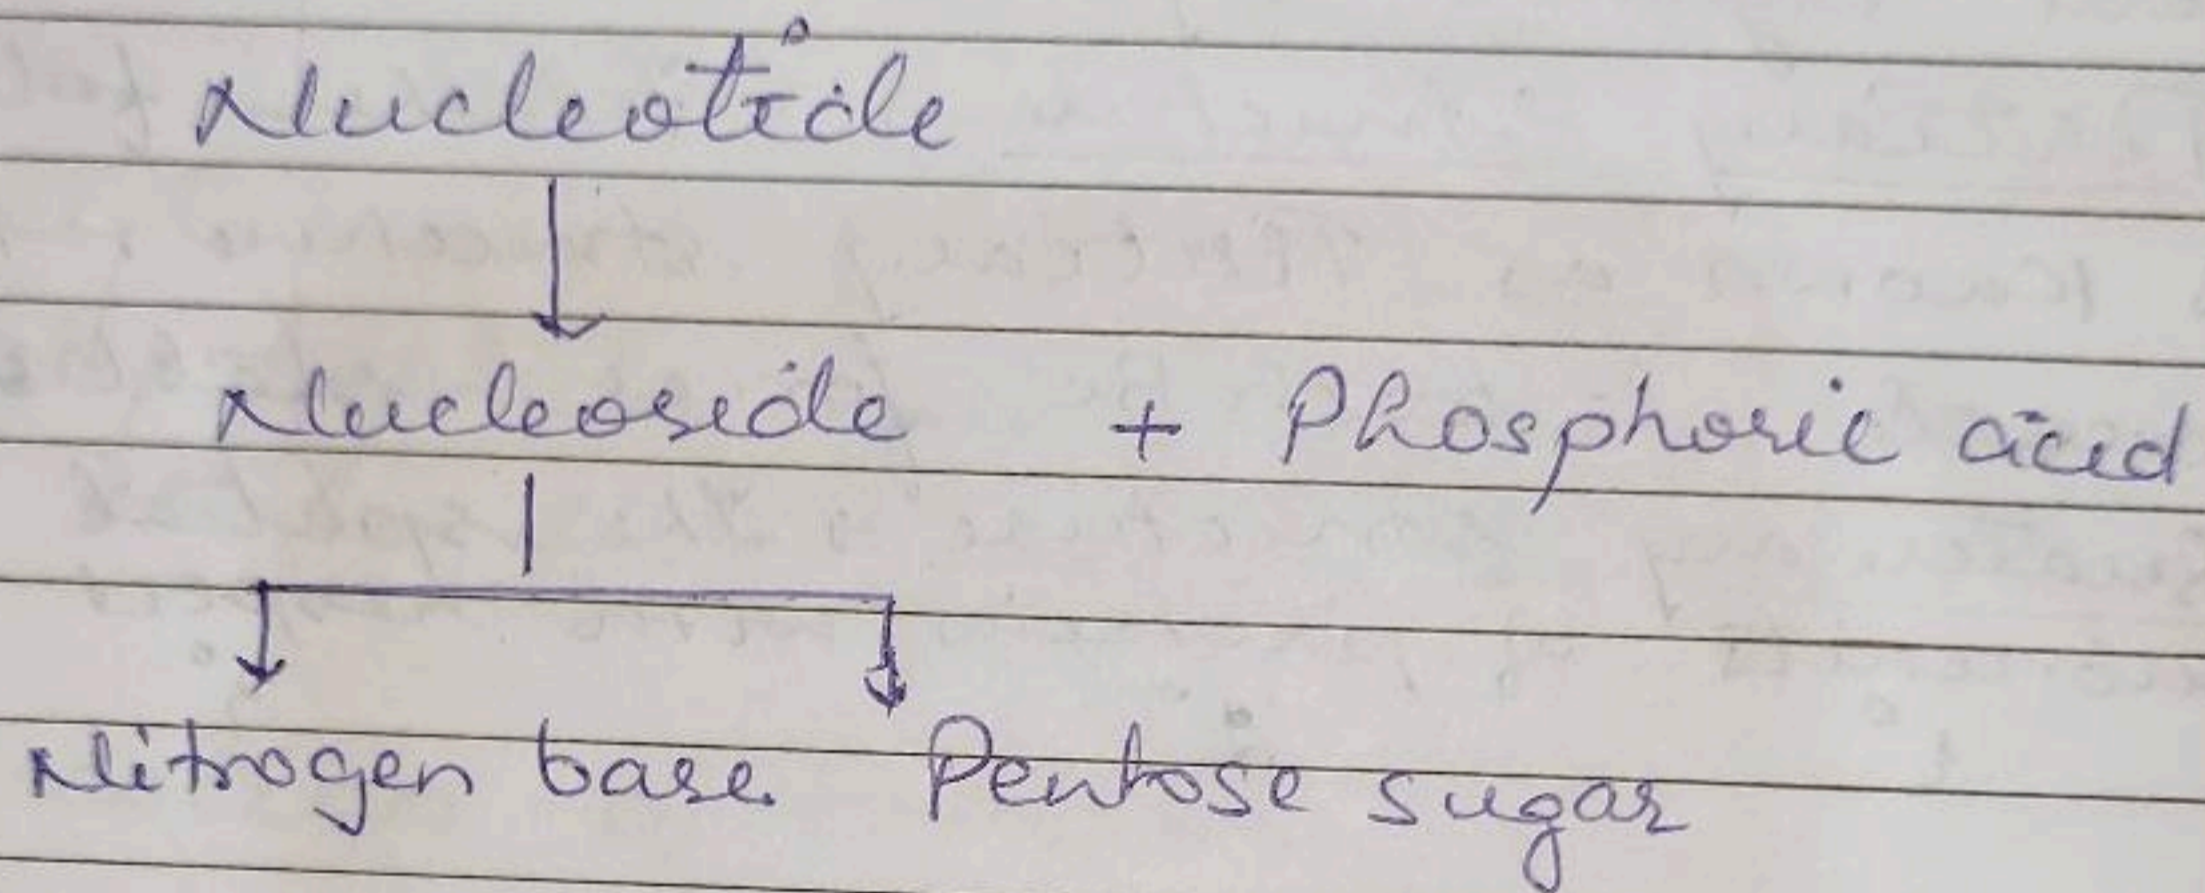 Nucleotide
Nucleoside + Phosphoric acid
Nitrogen base Pentose sugar